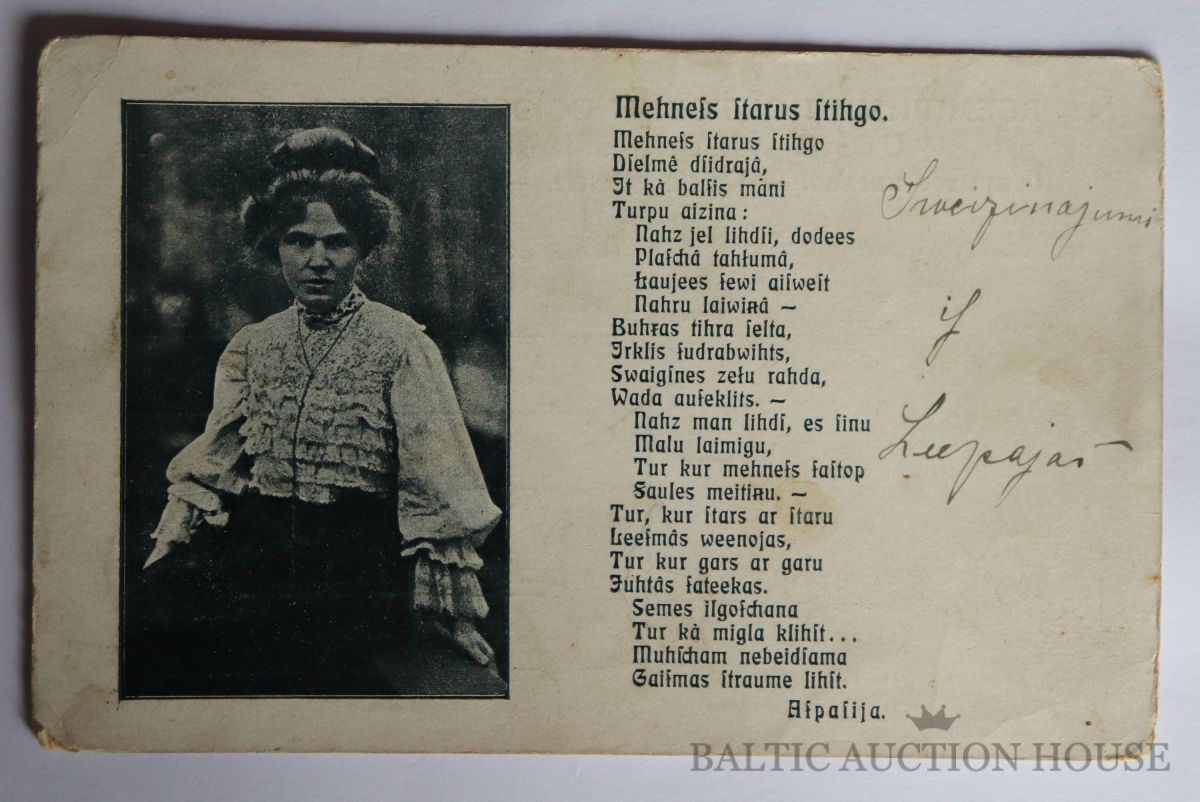 Mehneſs ſtarus ſtihgo.
Mehneſs ſtarus ſtihgo
Dſelmê dſidrajâ,
It kà balſis màni
Turpu aizina:
Nahz jel lihdſi, dodees
Plaſchâ tahłumâ,
Łaujees ſewi aiſweſt
Nahru laiwiņâ —
Buhŗas tihra ſelta,
Irklis ſudrabwihts,
Swaigſnes zełu rahda,
Wada auſeklits. —
Nahz man lihdſ, es ſinu
Malu laimigu,
Tur kur mehneſs ſaſtop
Saules meitiņu. —
Tur, kur ſtars ar ſtaru
Leeſmâs weenojas,
Tur kur gars ar garu
Juhtâs ſateekas.
Semes ilgoſchana
Tur kà migla klihſt...
Muhſcham nebeidſama
Gaiſmas ſtraume lihſt.
Aſpaſija.
Sweizinajums
iſ
Leepajas
BALTIC AUCTION HOUSE